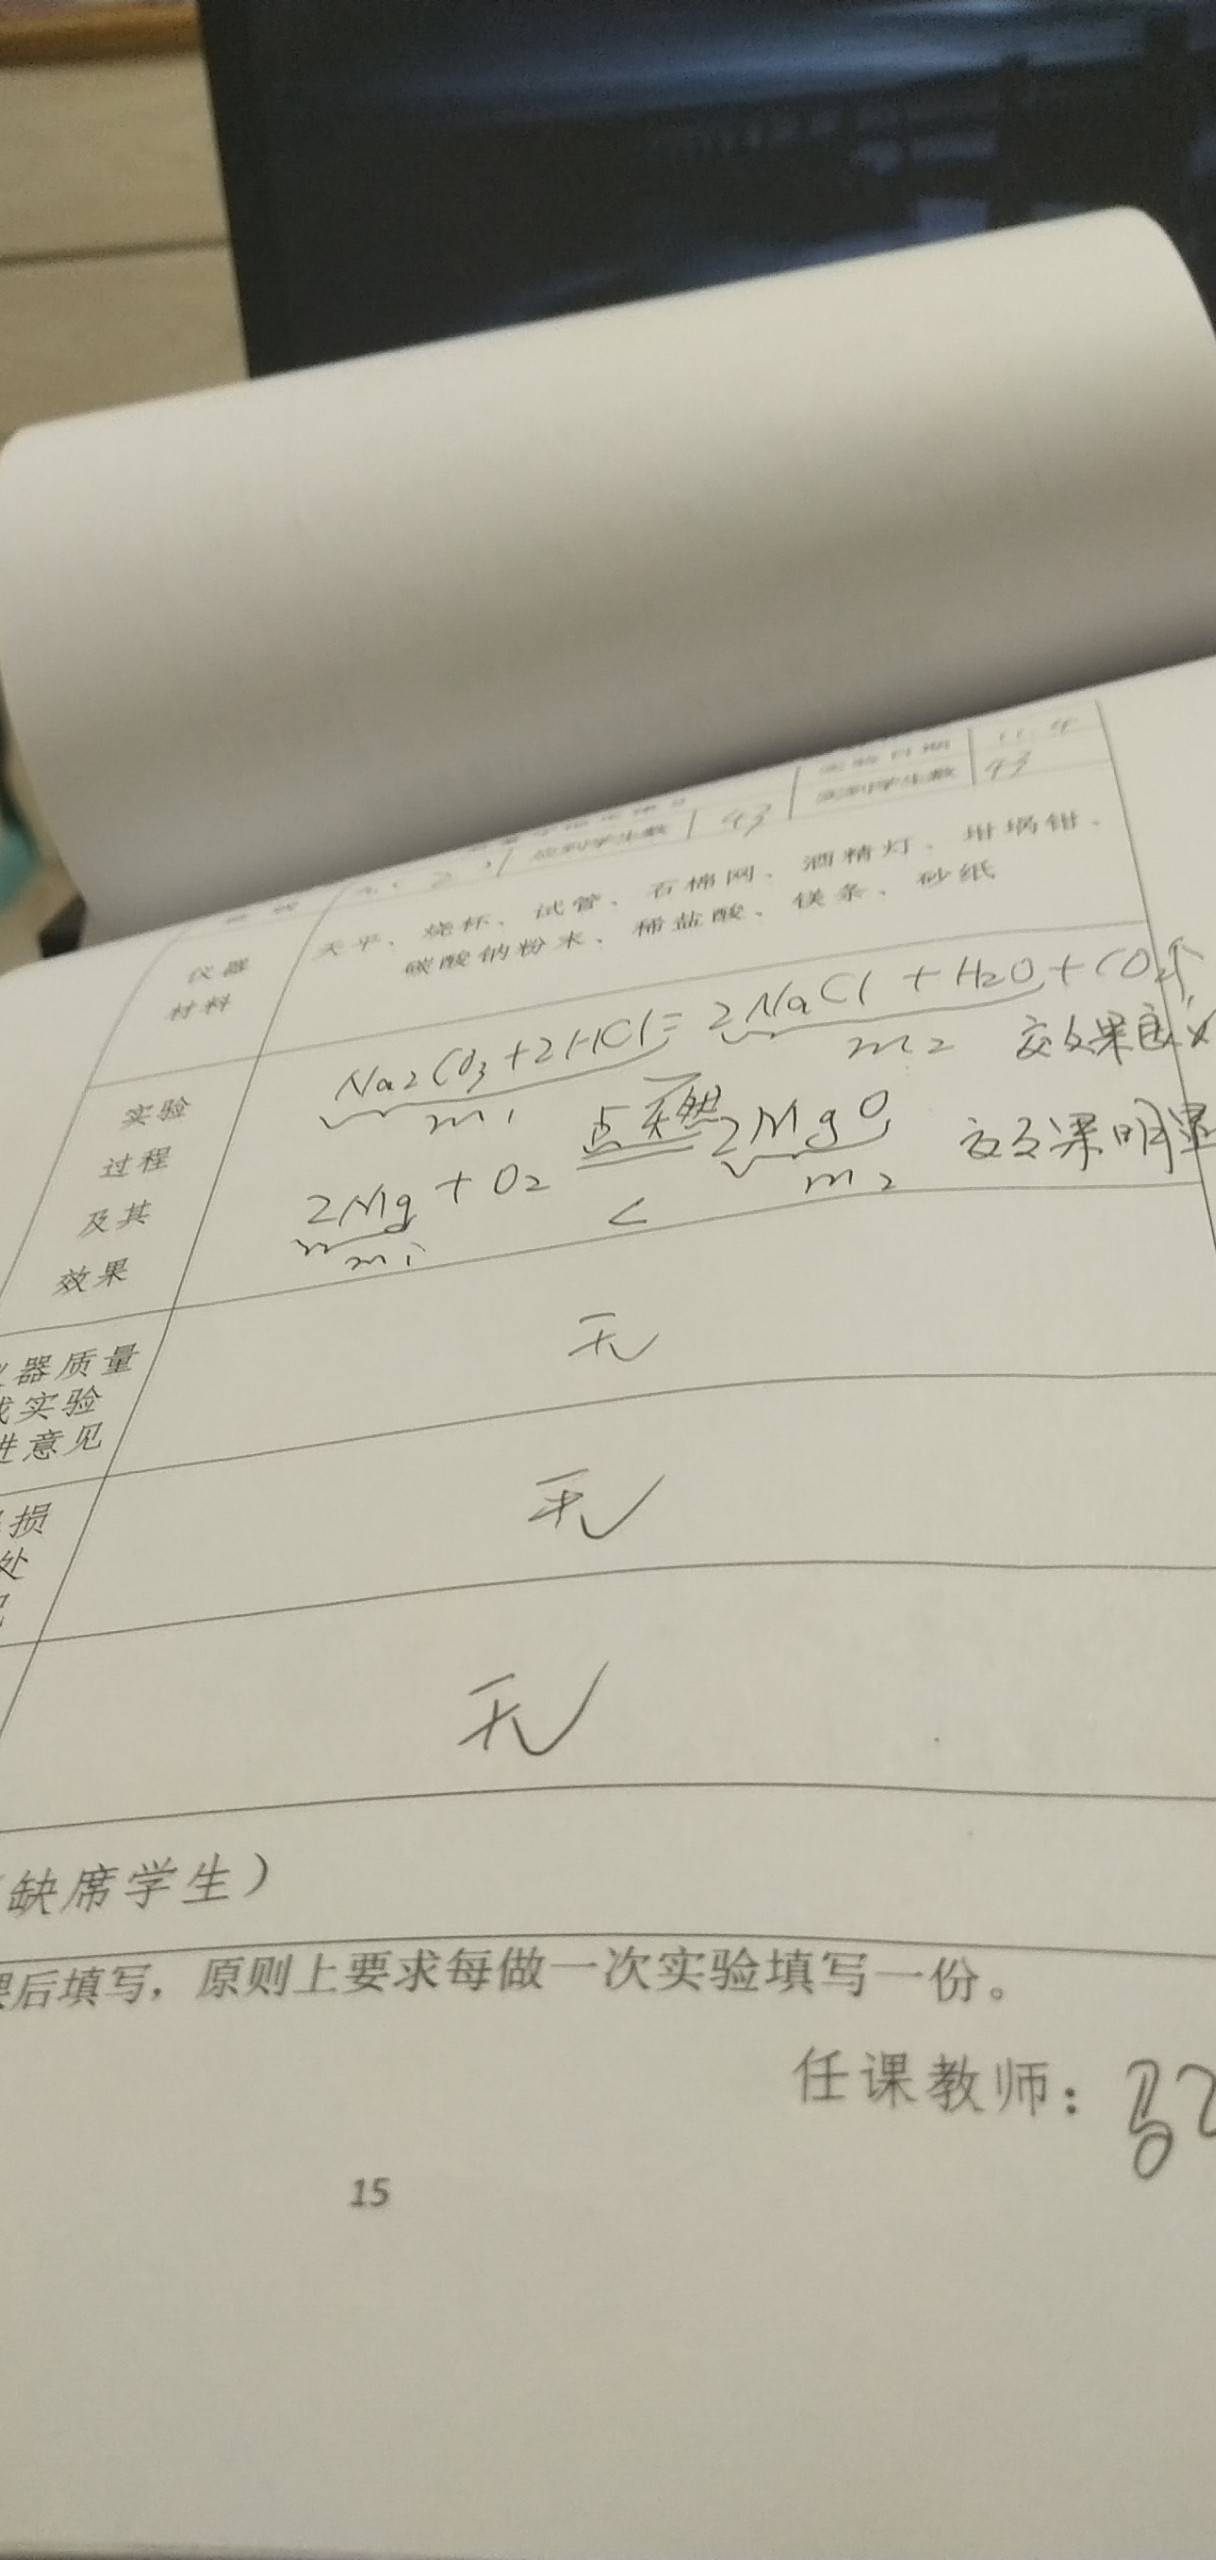 实验日期 11.4
应到学生数 43 实到学生数 43
仪器材料
天平、烧杯、试管、石棉网、酒精灯、坩埚钳、
碳酸钠粉末、稀盐酸、镁条、砂纸
实验
过程
及其
效果
Na2CO3+2HCl=2NaCl+H2O+CO2↑
m1 m2 效果
2Mg+O2 点燃 2MgO 效果明显
m1 < m2
仪器质量
或实验
进意见
无
损
处
无
无
缺席学生）
课后填写，原则上要求每做一次实验填写一份。
任课教师：
15